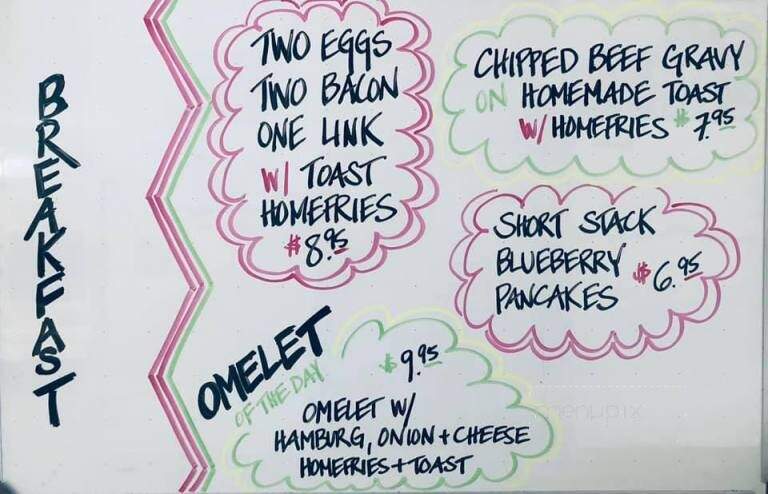 BREAKFAST
TWO EGGS
TWO BACON
ONE LINK
W/ TOAST
HOMEFRIES
$8.95
CHIPPED BEEF GRAVY
ON HOMEMADE TOAST
W/ HOMEFRIES $7.95
SHORT STACK
BLUEBERRY $6.95
PANCAKES
OMELET
OF THE DAY
$9.95
OMELET W/
HAMBURG, ONION + CHEESE
HOMEFRIES + TOAST
menupix